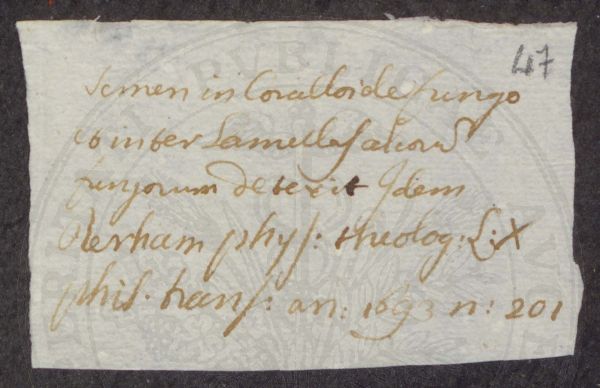 47
Semen in Coralloide fungo
et inter Lamellas aliorū
fungorum detexit Idem
Derham phys: theolog: L: X
phil. trans: an: 1693 n: 201